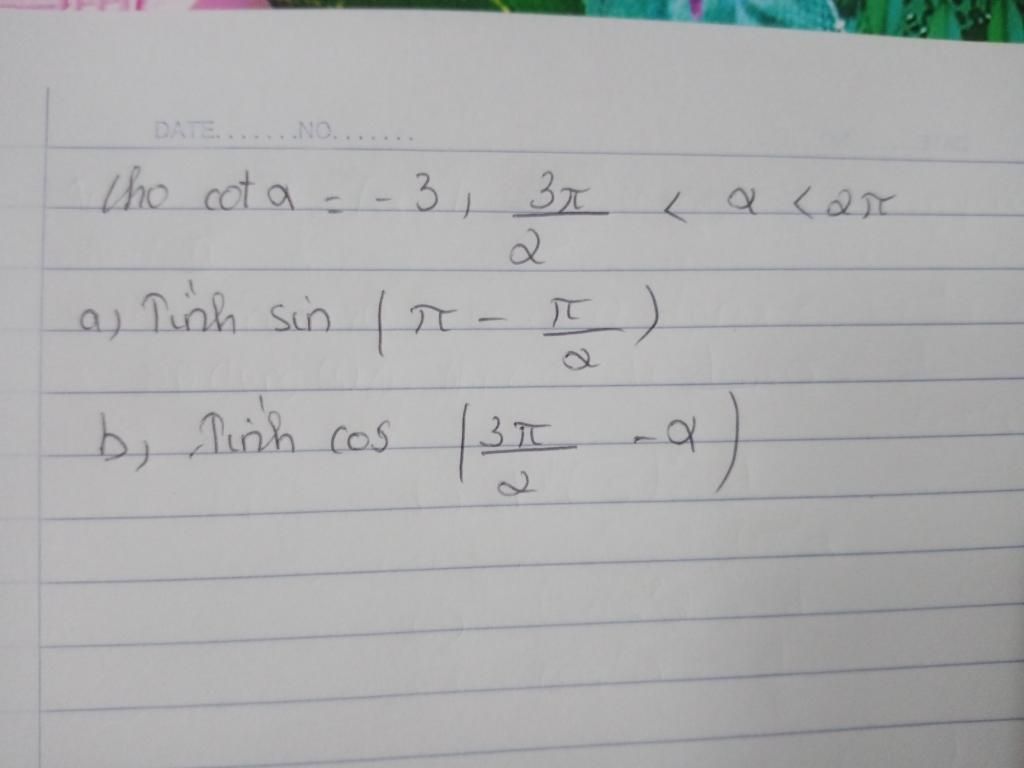 DATE.......NO.......
Cho cot α = -3, 3π/2 < α < 2π
a, Tính sin (π - π/2)
b, Tính cos (3π/2 - α)